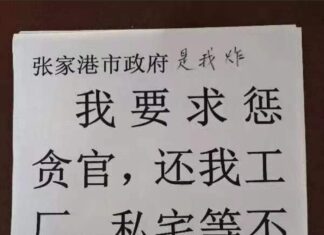 张家港市政府是我炸
我要求惩
贪官，还我工
厂、私宅等不